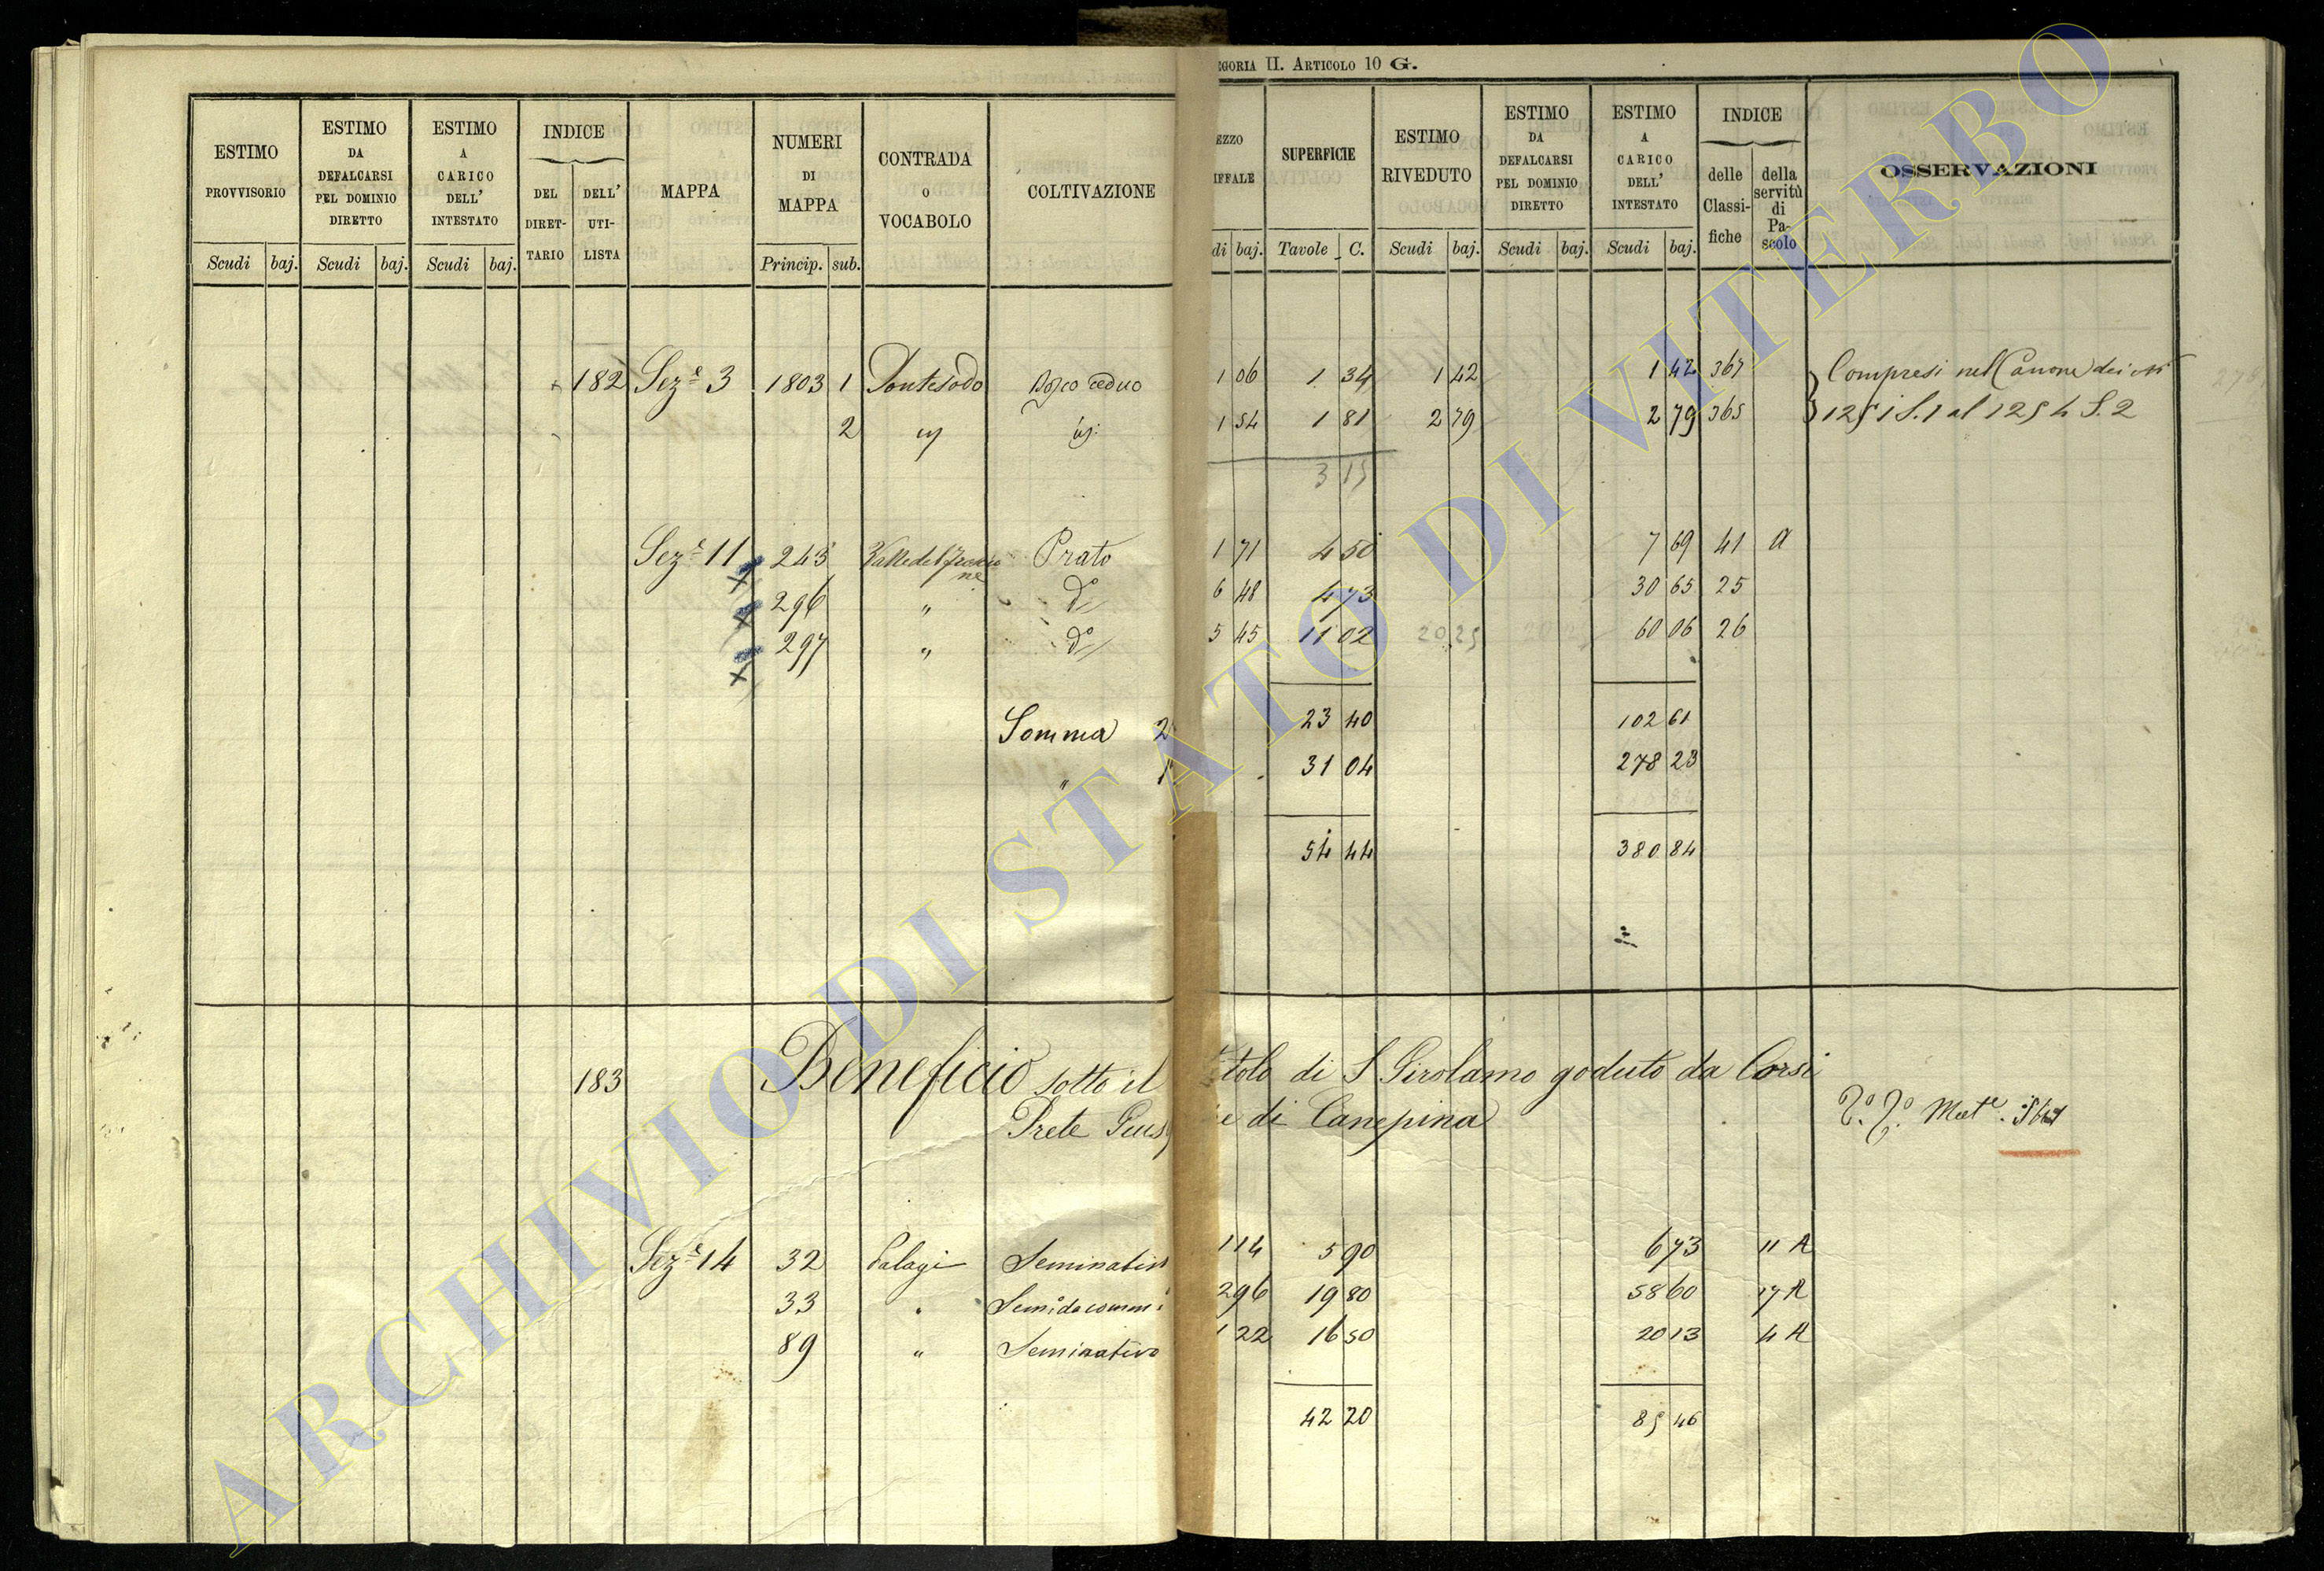 EGORIA II. ARTICOLO 10 G.
ESTIMO PROVVISORIO
ESTIMO DA DEFALCARSI PEL DOMINIO DIRETTO
ESTIMO A CARICO DELL' INTESTATO
INDICE
DEL DIRETTARIO
DELL' UTILISTA
MAPPA
NUMERI DI MAPPA
CONTRADA O VOCABOLO
COLTIVAZIONE
EZZO IFFALE
SUPERFICIE
ESTIMO RIVEDUTO
ESTIMO DA DEFALCARSI PEL DOMINIO DIRETTO
ESTIMO A CARICO DELL' INTESTATO
INDICE
delle Classifiche
della servitù di Pascolo
OSSERVAZIONI
Scudi baj. Scudi baj. Scudi baj. Princip. sub. di baj. Tavole C. Scudi baj. Scudi baj. Scudi baj.
182 Sez.e 3 1803 1 Pontesodo Bosco ceduo 1 06 1 34 1 42 1 42 367 Compresi nel Canone dei
2 1 54 1 81 2 79 2 79 365 1251 S.1 al 1254 S.2
3 15
Sez.e 11 243 Valle del Prato 1 71 4 50 7 69 41 a
296 " do 6 48 4 73 30 65 25
297 " do 5 45 11 02 20 25 60 06 26
Somma 2 23 40 102 61
" 1 31 04 278 23
54 44 380 84
183 Beneficio sotto il tolo di S Girolamo goduto da Corsi
Prete Gius e di Canepina
Sez.e 14 32 Palagi Seminativ 114 5 90 6 73 11 A
33 296 19 80 58 60 17 A
89 " Seminativo 1 22 16 50 20 13 4 A
42 20 85 46
ARCHIVIO DI STATO DI VITERBO